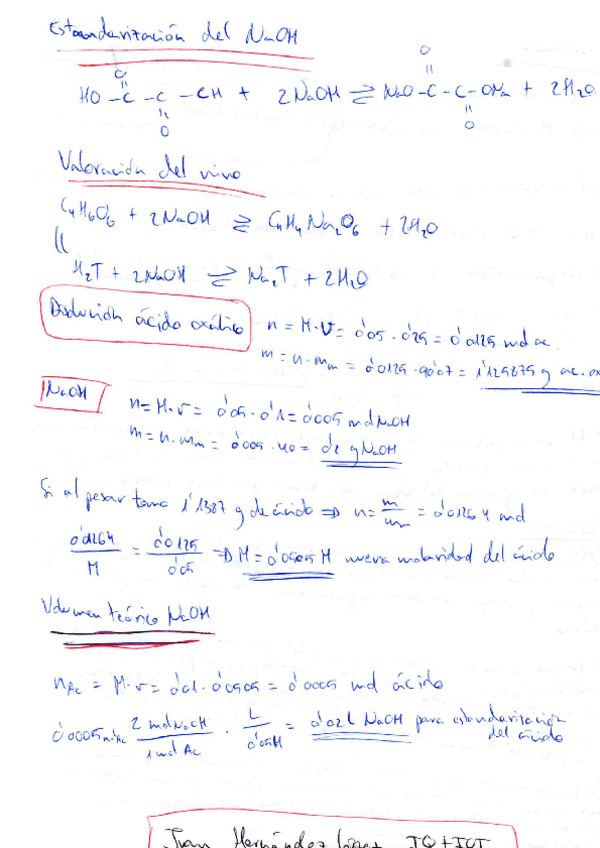 Estandarización del NaOH
O O
HO-C-C-CH + 2NaOH ⇌ NaO-C-C-ONa + 2H₂O
O O
Valoración del vino
C₄H₆O₆ + 2NaOH ⇌ C₄H₄Na₂O₆ + 2H₂O
H₂T + 2NaOH ⇌ Na₂T + 2H₂O
Disolución ácido oxálico
n = M·V = 0'05 · 0'25 = 0'0125 mol ac.
m = n·mm = 0'0125 · 90'07 = 1'125875 g ac. ox
NaOH
n = M·v = 0'05 · 0'1 = 0'005 mol NaOH
m = n·mm = 0'005 · 40 = 0'2 g NaOH
Si al pesar toma 1'1387 g de ácido ⇒ n = m/mm = 0'01264 mol
0'01264/M = 0'0125/0'05 ⇒ M = 0'0505 M nueva molaridad del ácido
Volumen teórico NaOH
nAc = M·v = 0'01 · 0'0505 = 0'0005 mol ácido
0'0005 mAc 2 mol NaOH/1 mol Ac · L/0'05M = 0'02 L NaOH para estandarización del ácido
Juan Hernández López IQ+IOI